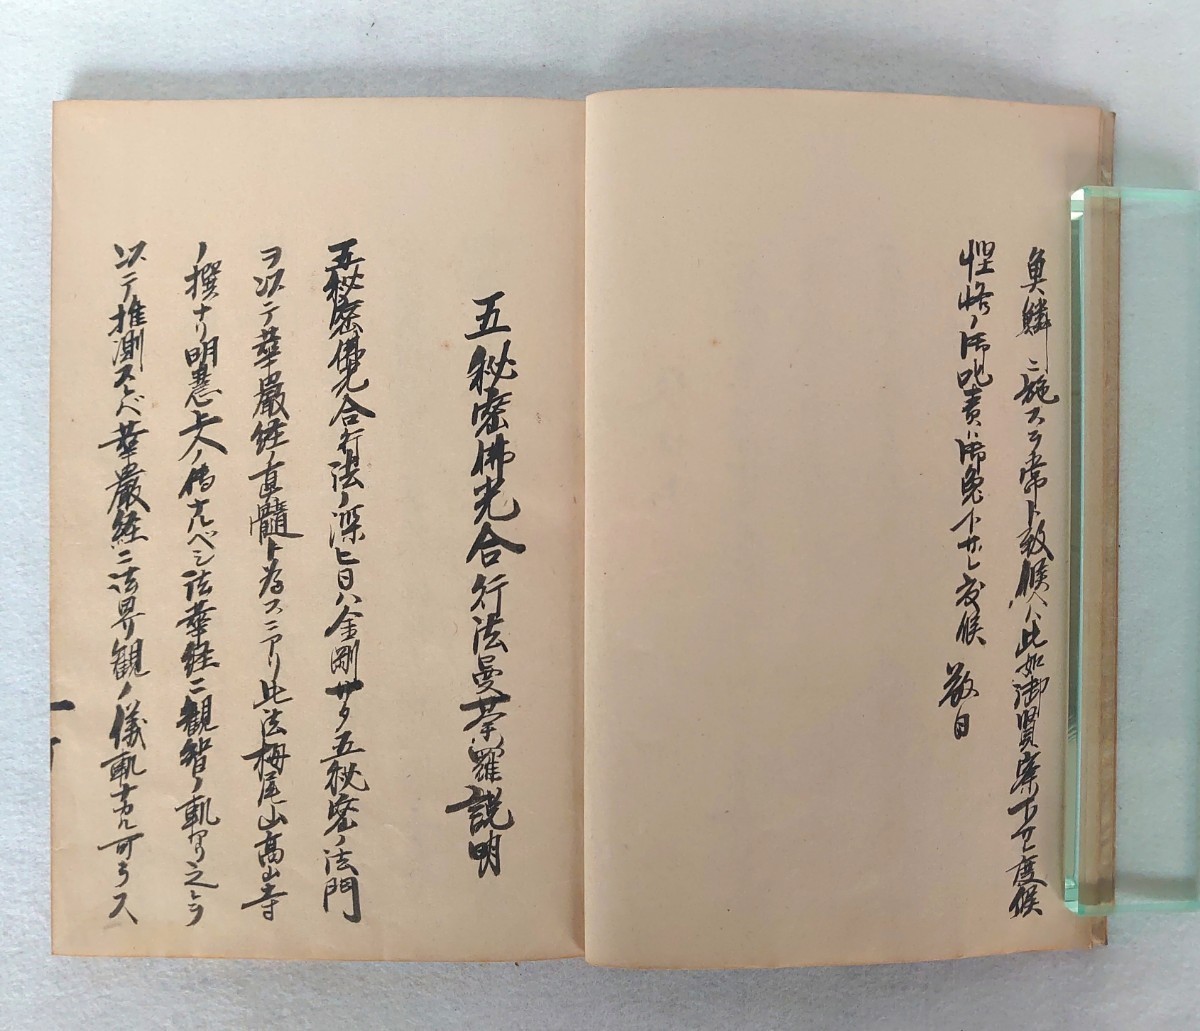 奥鱗ニ施スヲ常ト致候ヘバ此如御賢察下サレ度候
慳悋ノ御叱責ハ御免下サレ度候 敬白
五秘密佛光合行法曼荼羅説明
五秘密佛光合行法ノ深旨ハ金剛サタ五秘密ノ法門
ヲ以テ華嚴経ノ真髓ト為スニアリ此法栂尾山高山寺
ノ撰ナリ明恵上人ノ傳ナルベシ法華経ニ観智ノ軌アリ之ヲ
以テ推測スレバ華嚴経ニ法界観ノ儀軌ナカル可ラス